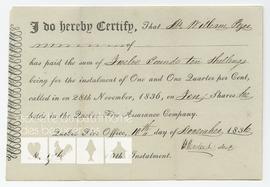 I do hereby Certify, That Mr William Pope
of
has paid the sum of Twelve Pounds ten Shillings
being for the instalment of One and One Quarter per Cent,
called in on 28th November, 1836, on Ten Shares he
holds in the Quebec Fire Assurance Company.
Quebec Fire Office, day of November 1836
Instalment.